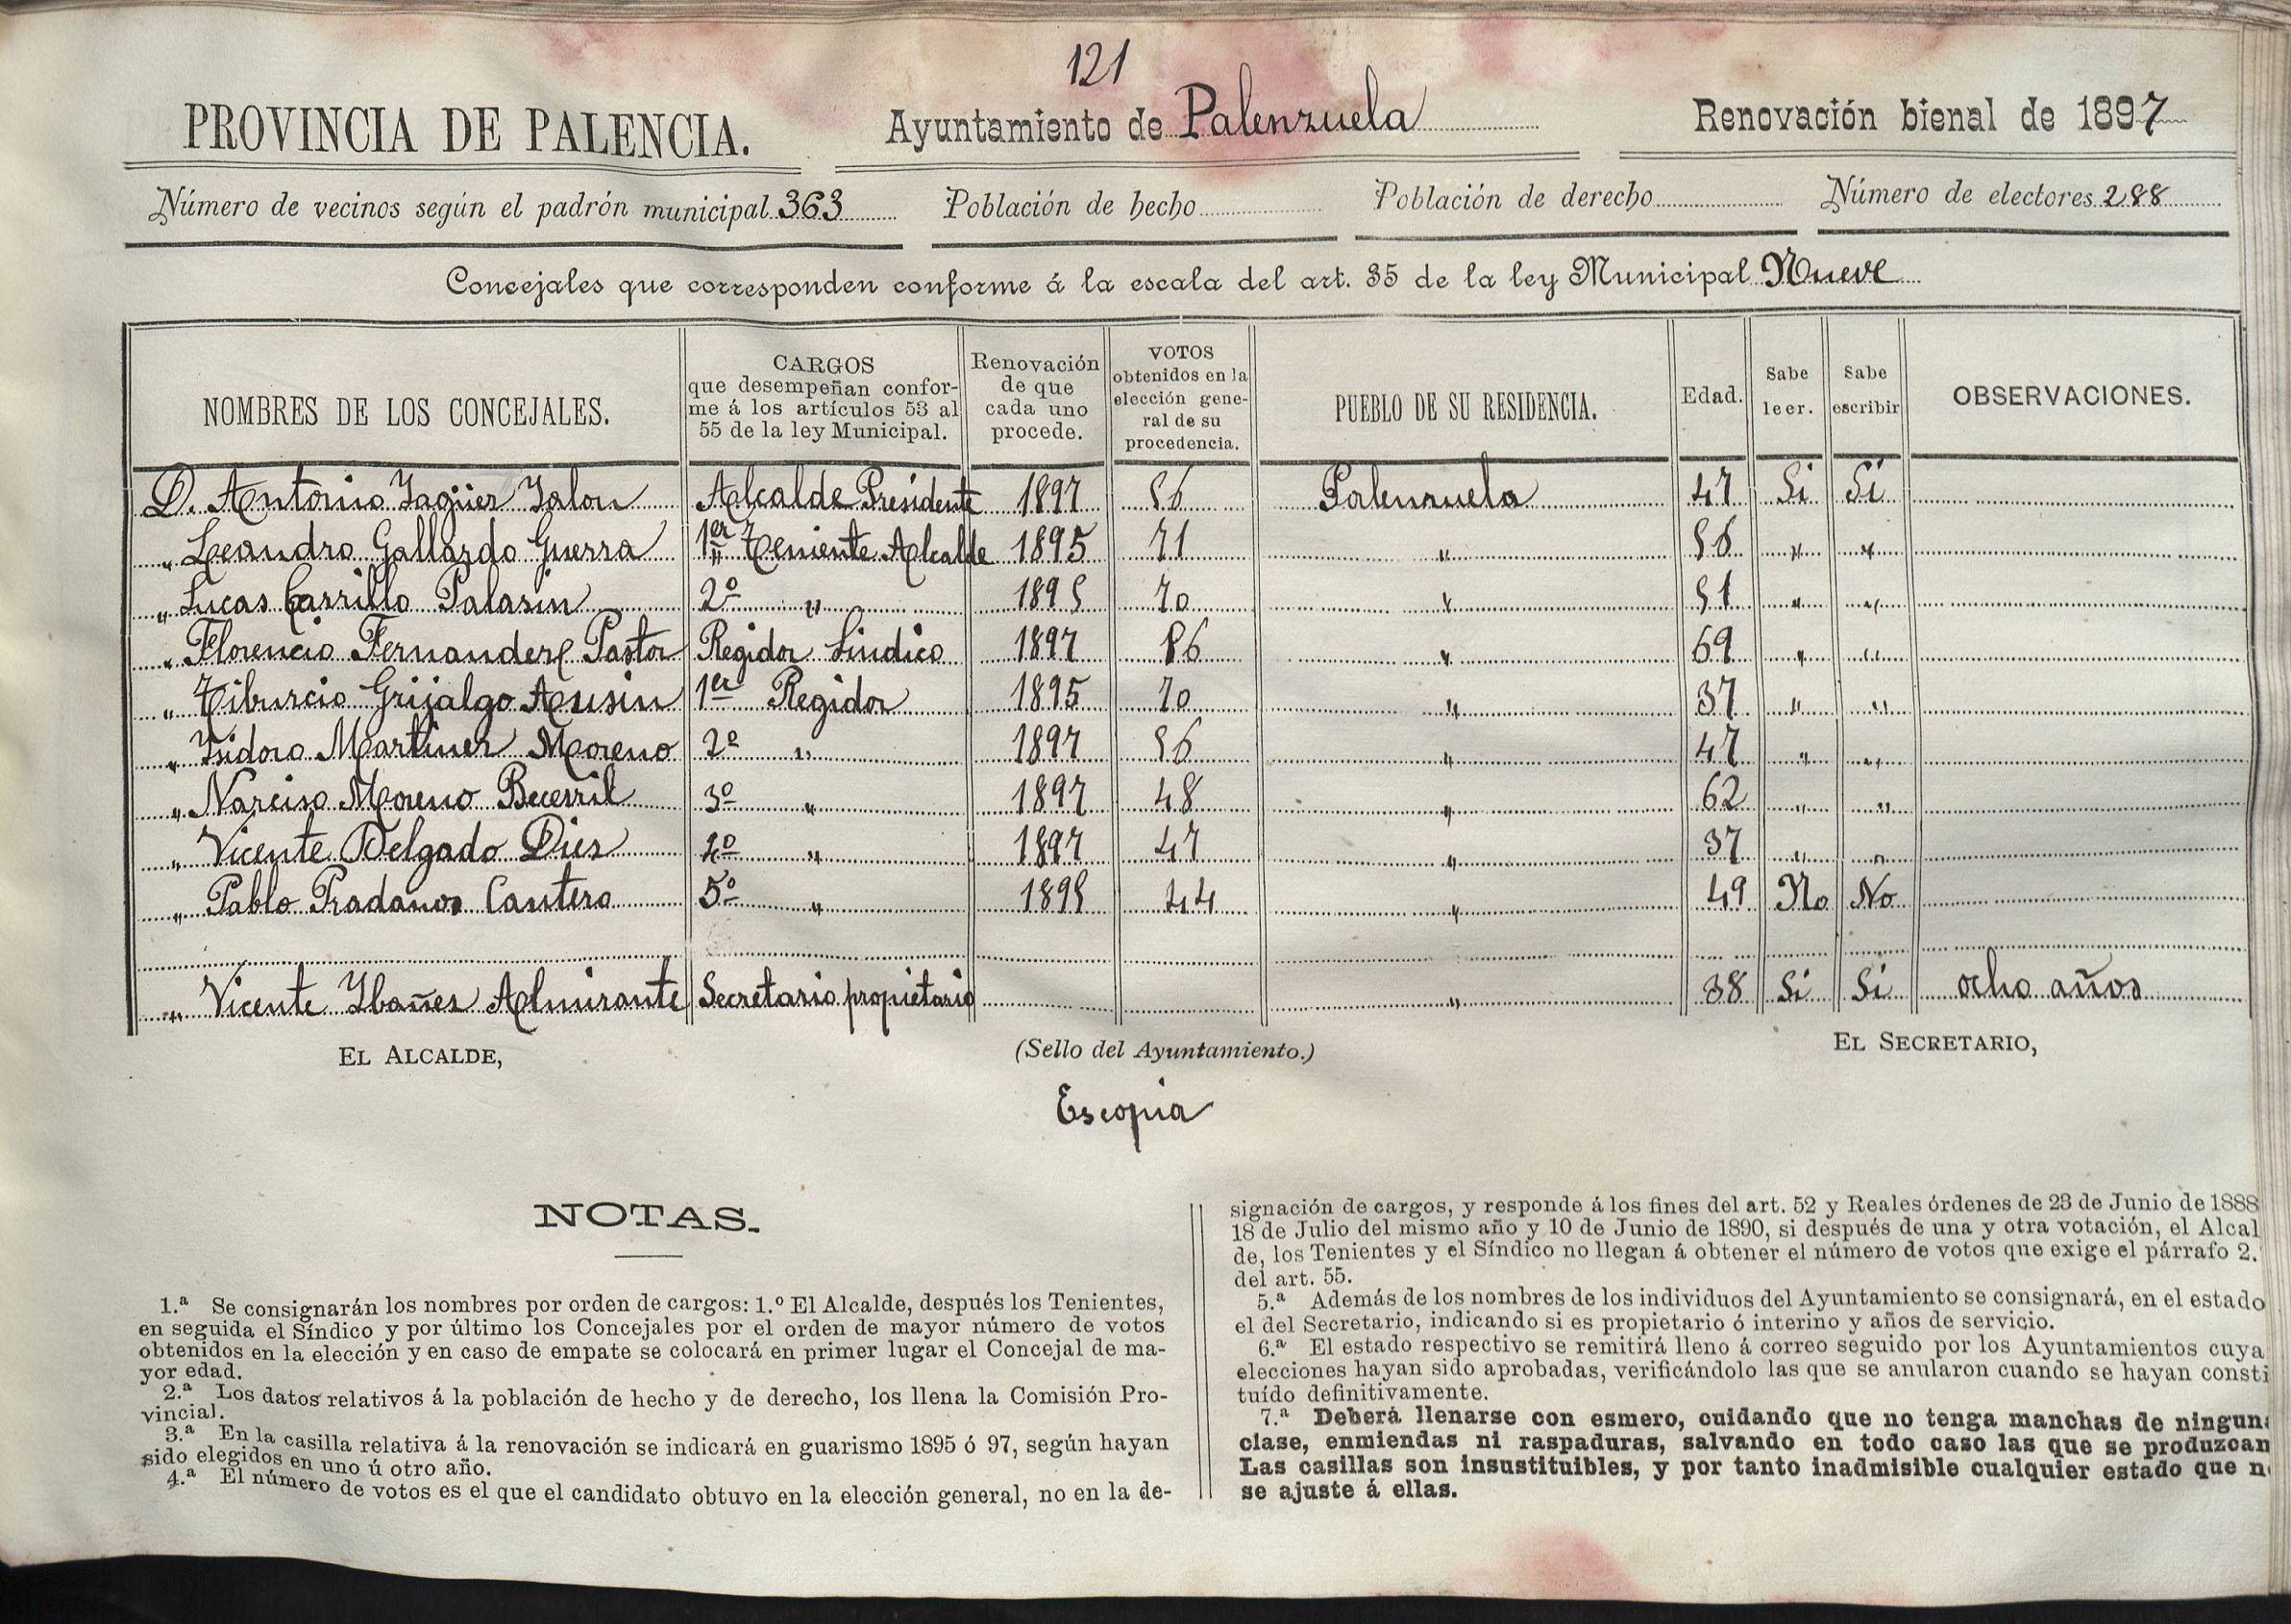 121
PROVINCIA DE PALENCIA. Ayuntamiento de Palenzuela Renovación bienal de 1897
Número de vecinos según el padrón municipal 363 Población de hecho Población de derecho Número de electores 288
Concejales que corresponden conforme á la escala del art. 35 de la ley Municipal Nueve
NOMBRES DE LOS CONCEJALES. CARGOS que desempeñan confor-me á los artículos 53 al 55 de la ley Municipal. Renovación de que cada uno procede. VOTOS obtenidos en la elección gene-ral de su procedencia. PUEBLO DE SU RESIDENCIA. Edad. Sabe leer. Sabe escribir OBSERVACIONES.
D. Antonio Yagüez Jalon Alcalde Presidente 1897 56 Palenzuela 47 Si Si
" Leandro Gallardo Guerra 1er " Teniente Alcalde 1895 71 " 56 " "
" Lucas Carrillo Palasin 2º " 1895 70 " 51 " "
" Florencio Fernandez Pastor Regidor Sindico 1897 86 " 69 " "
" Tiburcio Grijalgo Ausin 1er Regidor 1895 70 " 37 " "
" Ysidoro Martinez Moreno 2º " 1897 56 " 47 " "
" Narciso Moreno Becerril 3º " 1897 48 " 62 " "
" Vicente Delgado Diez 4º " 1897 47 " 37 " "
" Pablo Pradanos Cantero 5º " 1895 44 " 49 No No
" Vicente Ybañez Almirante Secretario propietario " 38 Si Si ocho años
EL ALCALDE, (Sello del Ayuntamiento.) EL SECRETARIO,
Escopia
NOTAS.
1.ª Se consignarán los nombres por orden de cargos: 1.º El Alcalde, después los Tenientes,
en seguida el Síndico y por último los Concejales por el orden de mayor número de votos
obtenidos en la elección y en caso de empate se colocará en primer lugar el Concejal de ma-
yor edad.
2.ª Los datos relativos á la población de hecho y de derecho, los llena la Comisión Pro-
vincial.
3.ª En la casilla relativa á la renovación se indicará en guarismo 1895 ó 97, según hayan
sido elegidos en uno ú otro año.
4.ª El número de votos es el que el candidato obtuvo en la elección general, no en la de-
signación de cargos, y responde á los fines del art. 52 y Reales órdenes de 23 de Junio de 1888
18 de Julio del mismo año y 10 de Junio de 1890, si después de una y otra votación, el Alcal
de, los Tenientes y el Síndico no llegan á obtener el número de votos que exige el párrafo 2.
del art. 55.
5.ª Además de los nombres de los individuos del Ayuntamiento se consignará, en el estado
el del Secretario, indicando si es propietario ó interino y años de servicio.
6.ª El estado respectivo se remitirá lleno á correo seguido por los Ayuntamientos cuya
elecciones hayan sido aprobadas, verificándolo las que se anularon cuando se hayan consti
tuído definitivamente.
7.ª Deberá llenarse con esmero, cuidando que no tenga manchas de ninguna
clase, enmiendas ni raspaduras, salvando en todo caso las que se produzcan
Las casillas son insustituibles, y por tanto inadmisible cualquier estado que n
se ajuste á ellas.